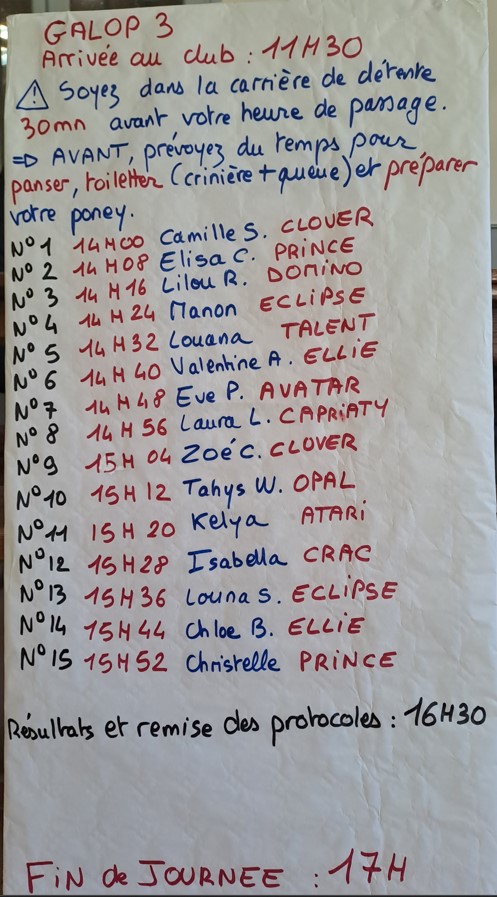 GALOP 3
Arrivée au club : 11H30
⚠ Soyez dans la carrière de détente
30mn avant votre heure de passage.
=> AVANT, prévoyez du temps pour
panser, toiletter (crinière + queue) et préparer
votre poney.
N°1 14H00 Camille S. CLOVER
N°2 14H08 Elisa C. PRINCE
N°3 14H16 Lilou R. DOMINO
N°4 14H24 Manon ECLiPSE
N°5 14H32 Louana TALENT
N°6 14H40 Valentine A. ELLiE
N°7 14H48 Eve P. AVATAR
N°8 14H56 Laura L. CAPRiATY
N°9 15H04 Zoé C. CLOVER
N°10 15H12 Tahys W. OPAL
N°11 15H20 Kelya ATARi
N°12 15H28 Isabella CRAC
N°13 15H36 Louna S. ECLiPSE
N°14 15H44 Chloe B. ELLiE
N°15 15H52 Christelle PRINCE
Résultats et remise des protocoles : 16H30
FiN de JOURNEE : 17H